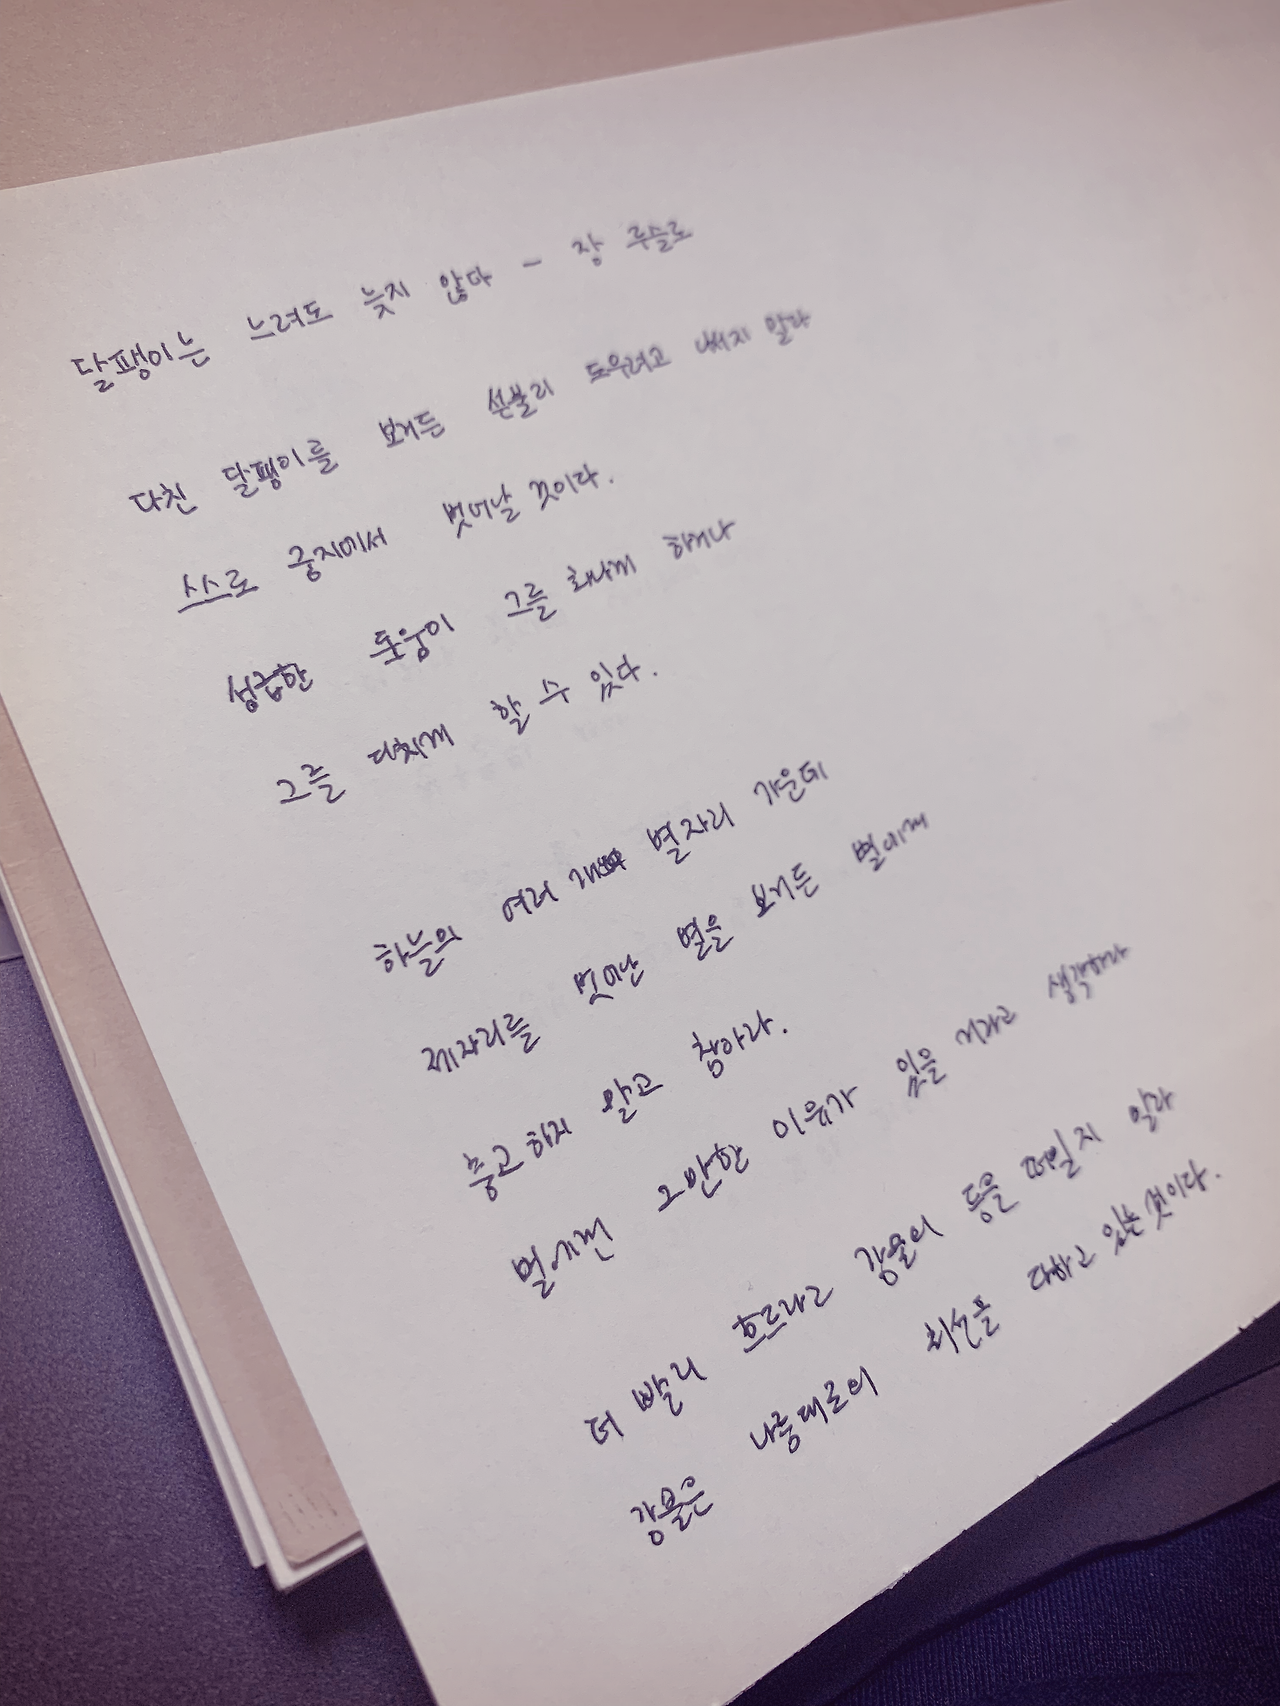 달팽이는 느려도 늦지 않다 - 장 루슬로
다친 달팽이를 보거든 섣불리 도우려고 나서지 말라
스스로 궁지에서 벗어날 것이다.
성급한 도움이 그를 화나게 하거나
그를 다치게 할 수 있다.
하늘의 여러 개의 별자리 가운데
제자리를 벗어난 별을 보거든 별에게
충고하지 말고 참아라.
별에겐 그만한 이유가 있을 거라고 생각하라
더 빨리 흐르라고 강물의 등을 떠밀지 말라
강물은 나름대로의 최선을 다하고 있는 것이다.